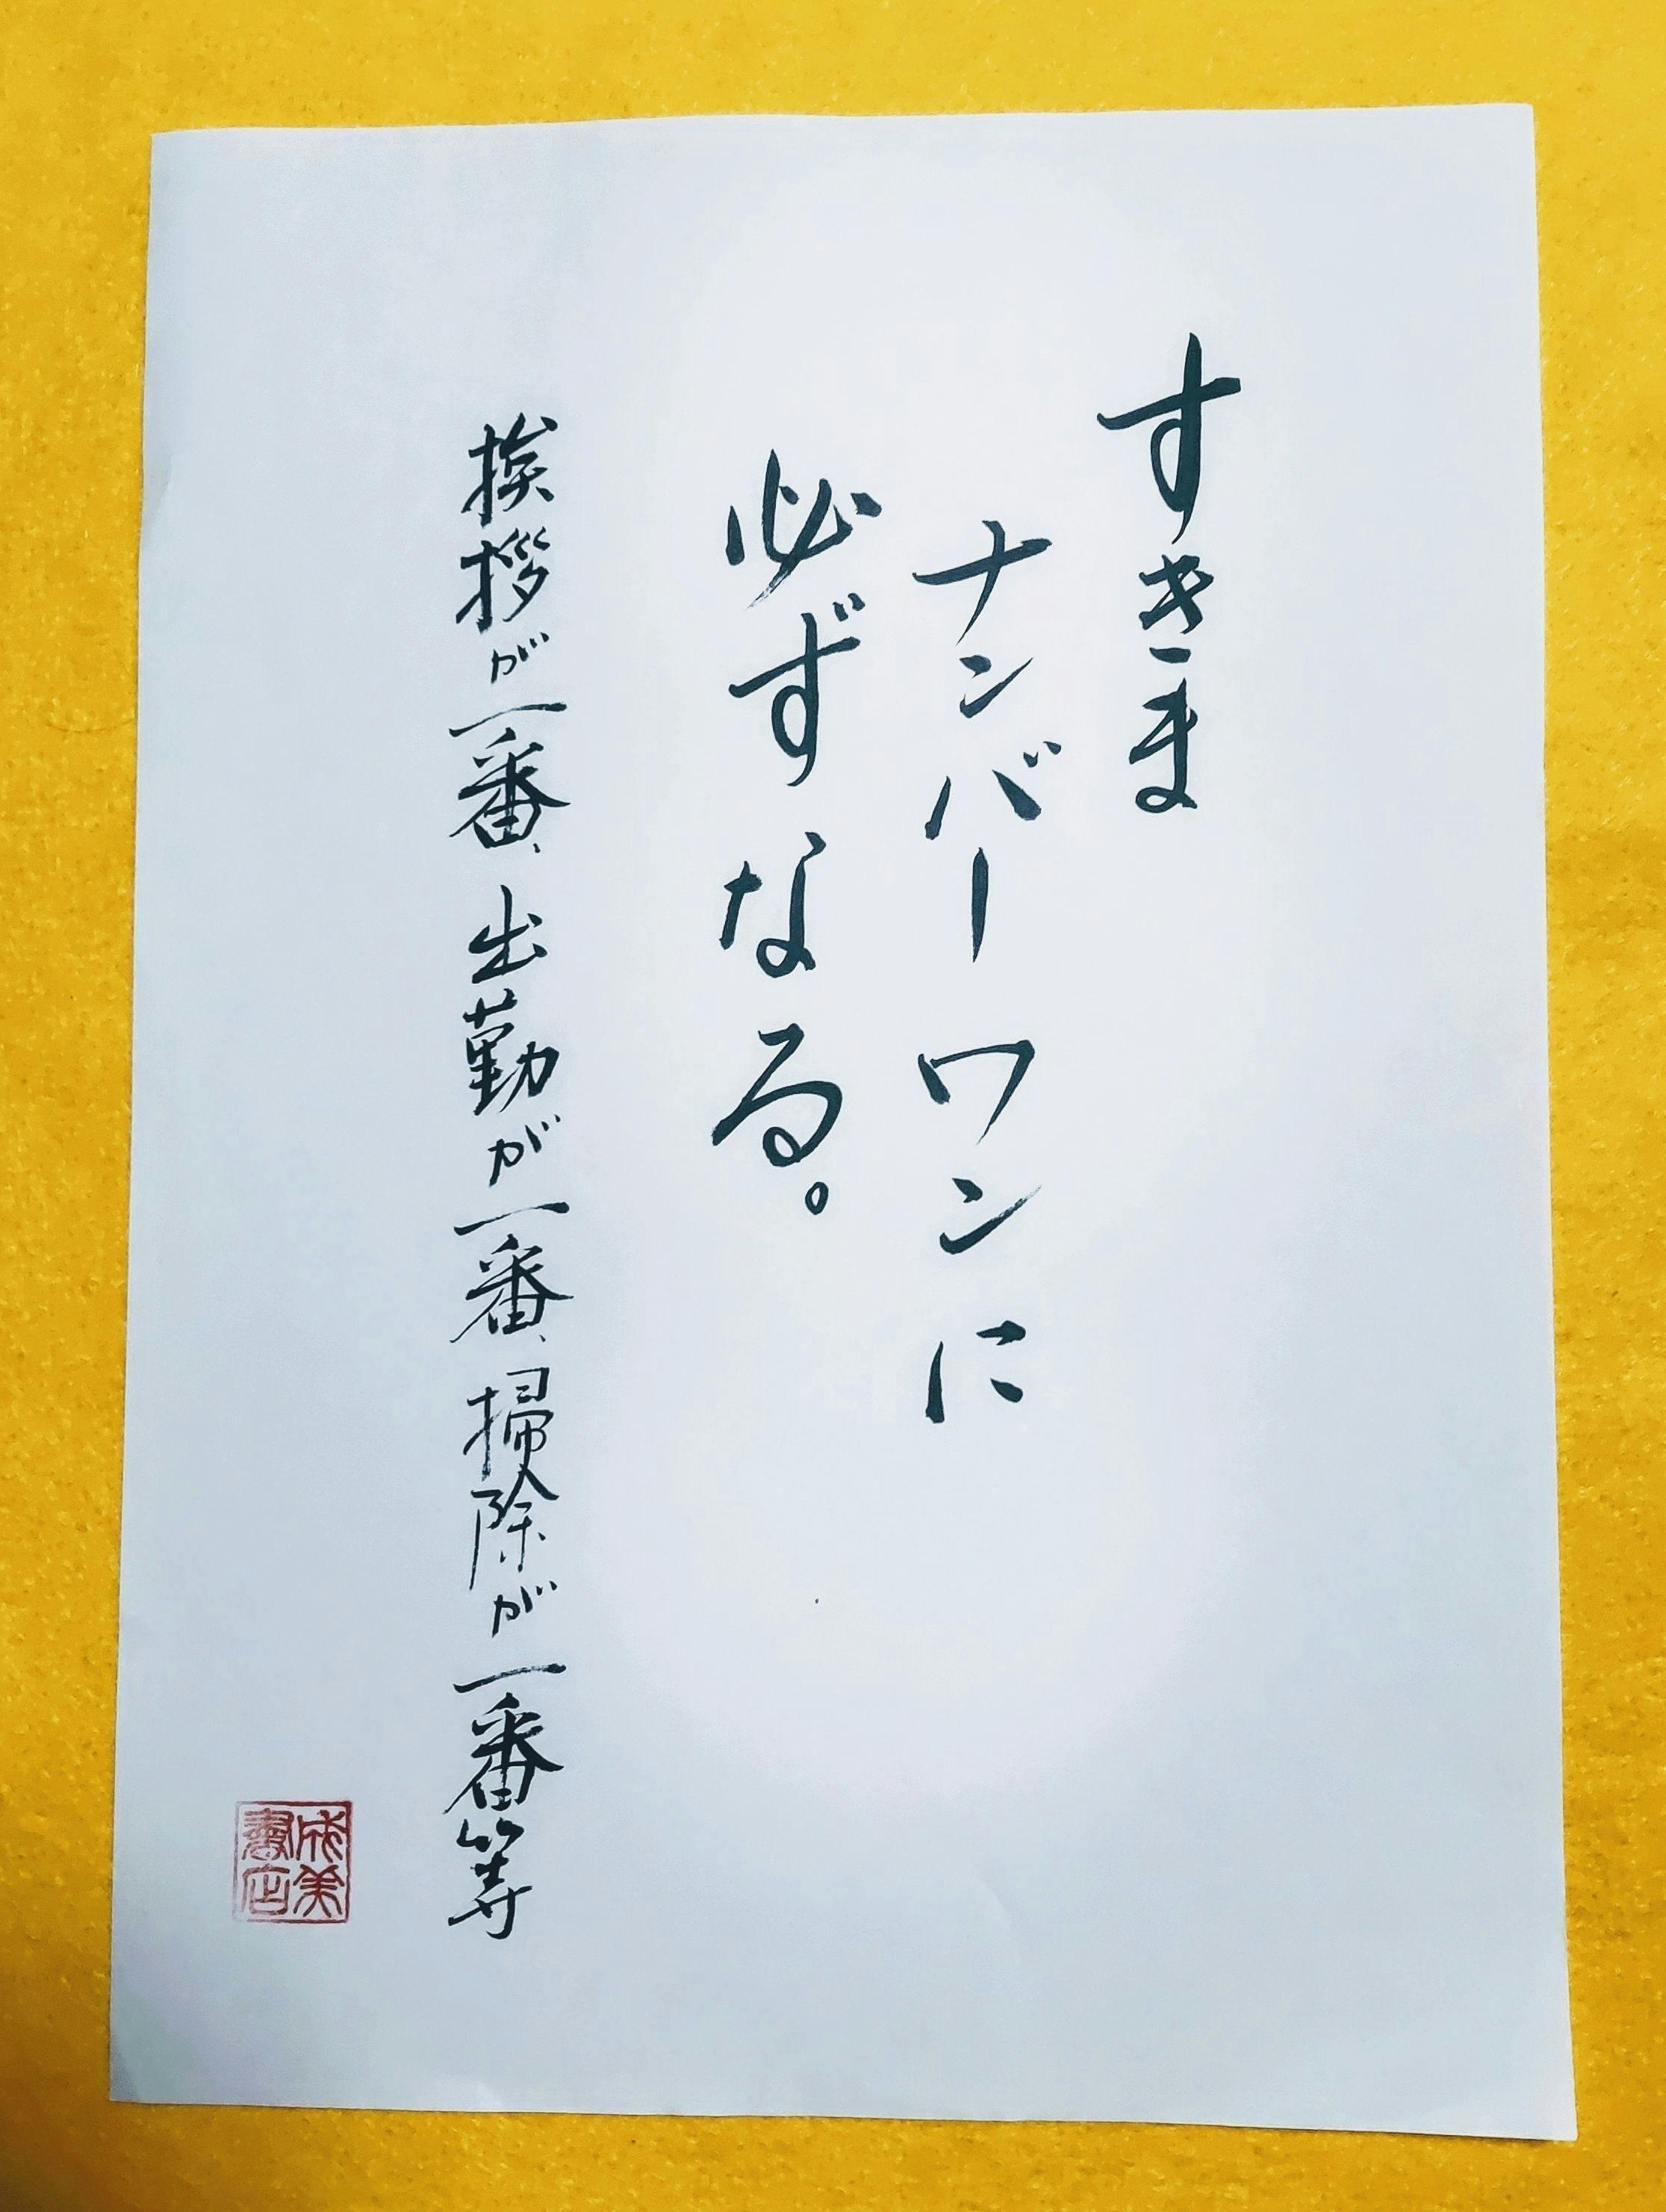 すきま
ナンバーワンに
必ずなる。
挨拶が一番、出勤が一番、掃除が一番等
成美書店